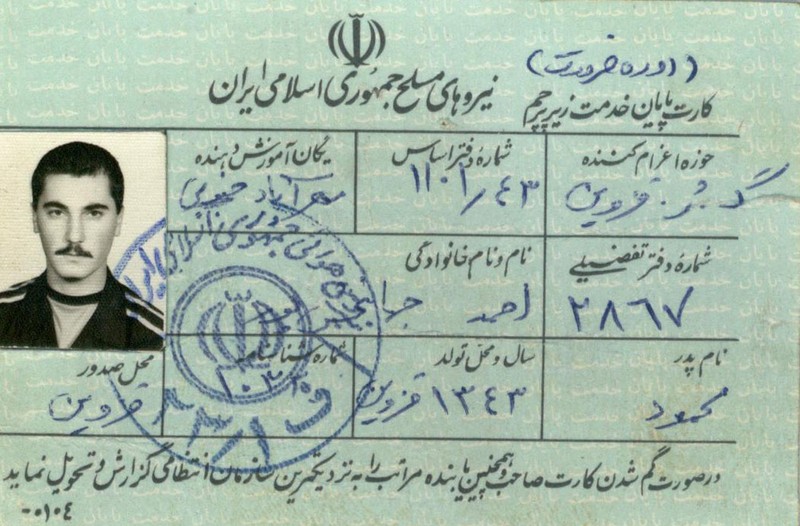 (دوره ضرورت)
نیروهای مسلح جمهوری اسلامی ایران
کارت پایان خدمت زیر پرچم
حوزه اعزام کننده
شماره دفتر اساس
یگان آموزش دهنده
قزوین
۱۱۰۱/۴۳
مهرآباد
شماره دفتر تفضیلی
نام و نام خانوادگی
۲۸۶۷
احمد
نام پدر
سال و محل تولد
شماره شناسنامه
محل صدور
محمود
۱۳۴۳ قزوین
قزوین
در صورت گم شدن کارت صاحب و همچنین یابنده مراتب را به نزدیکترین سازمان انتظامی گزارش و تحویل نماید
-۰۱۰۴